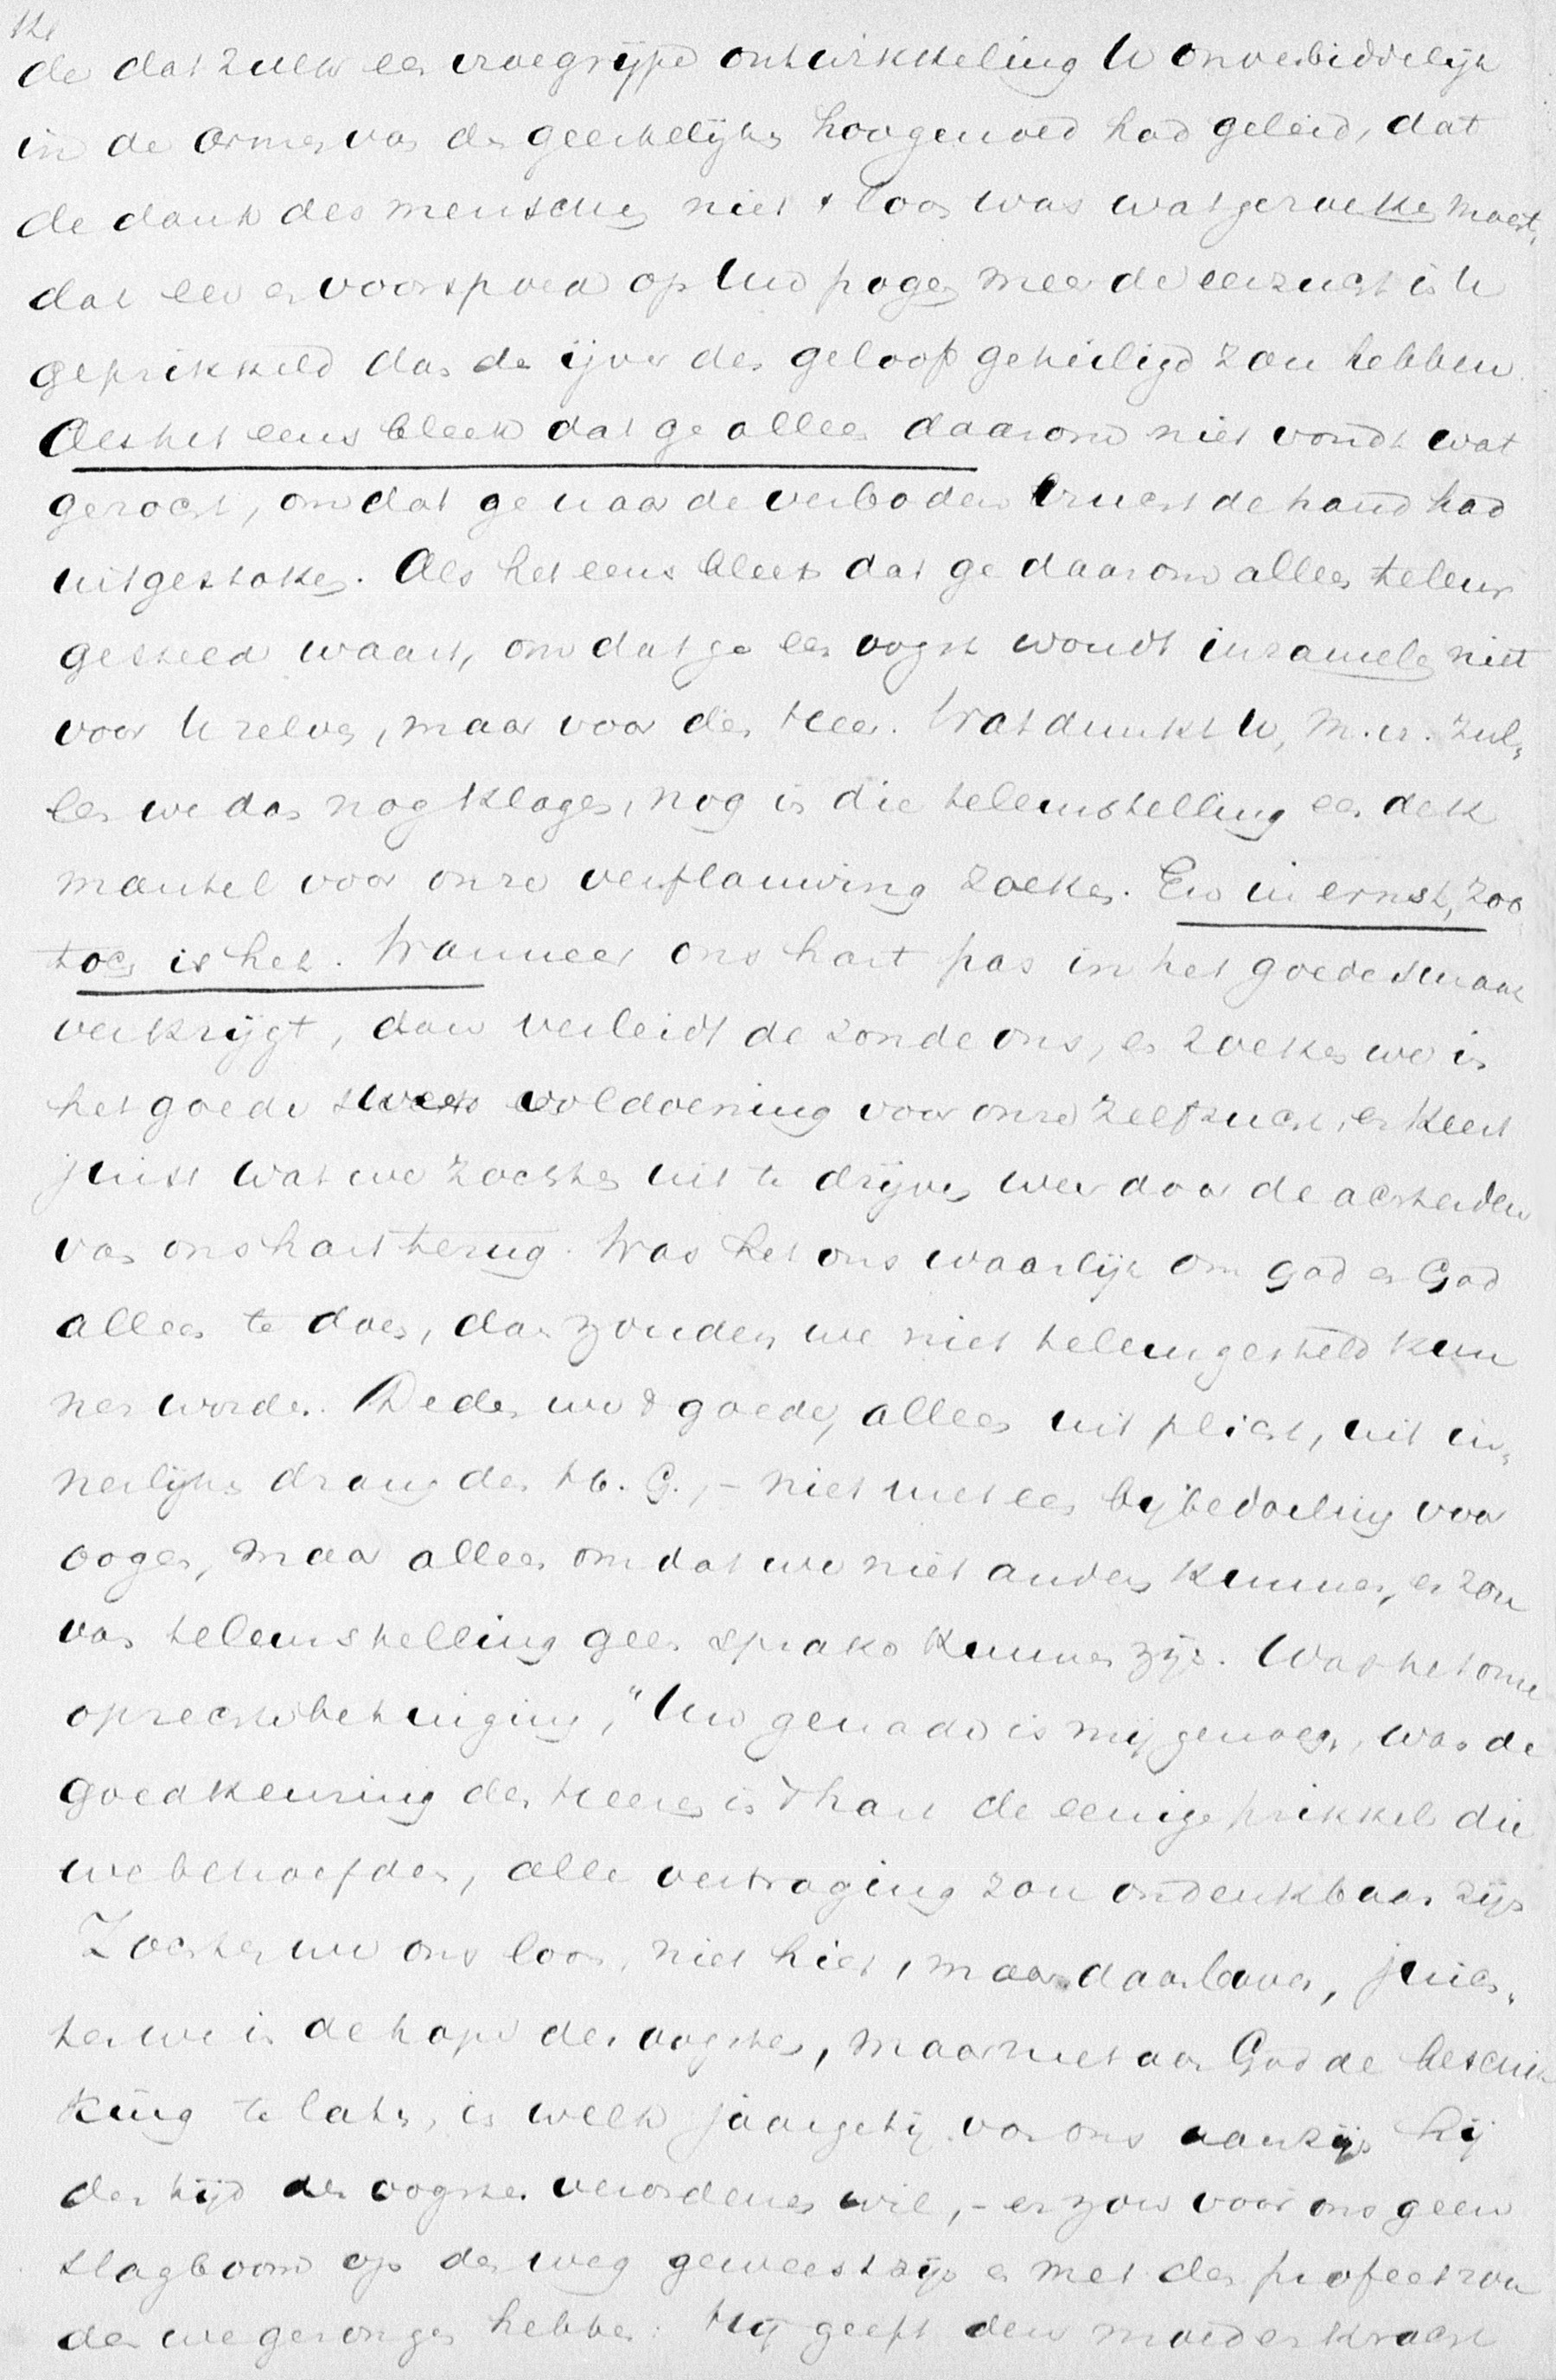 de dat zulk een vroegrijpe ontwikkeling U onverbiddelijk
in de armen van de geestelijken hoogmoed had geleid, dat
de dank des menschen niet 't loon was wat ge zoeken moest,
dat een en voorspoed op Uw pogen meer de eerzucht in U
geprikkeld dan de ijver des geloofs geheiligd zou hebben.
Als het eens bleek dat ge alleen daarom niet vondt wat
ge zocht, omdat ge naar de verboden vrucht de hand had
uitgestoken. Als het eens bleek dat ge daarom alleen teleur
gesteld waart, omdat ge een oogst woudt inzamelen niet
voor U zelven, maar voor den Heer. Wat dunkt U, m. vr. zul„
len we dan nog klagen, nog in die teleurstelling een dek
mantel voor onze verflauwing zoeken. En in ernst, zoo
toch is het. Wanneer ons hart pas in het goede smaak
verkrijgt, dan verleidt de zonde ons, en zoeken we in
het goede voldoening voor onze zelfzucht, en keert
juist wat we zochten uit te drijven weer door de achterdeur
van ons hart terug. Was het ons waarlijk om God en God
alleen te doen, dan zouden we niet teleurgesteld kun
nen worden. Deden we 't goede, alleen uit plicht, uit in„
nerlijke drang des H. G., – niet met een bijbedoeling voor
oogen, maar alleen omdat we niet anders kunnen, er zou
van teleurstelling geen sprake kunnen zijn. Was het onze
oprechte betuiging, "Uw genade is mij genoeg, was de
goedkeuring des Heeren in 't hart de eenige prikkel die
we behoefden, alle vertraging zou ondenkbaar zijn
Zochten we ons loon, niet hier, maar daarboven, juich„
ten we in de hope des oogstes, maar met aan God de beschik
king te laten, in welk jaargetij van ons aanzijn hij
den tijd des oogstes verordenen wil, – er zou voor ons geen
slagboom op den weg geweest zijn en met den profeet zou
den we gezongen hebben: Hij geeft den moeden kracht